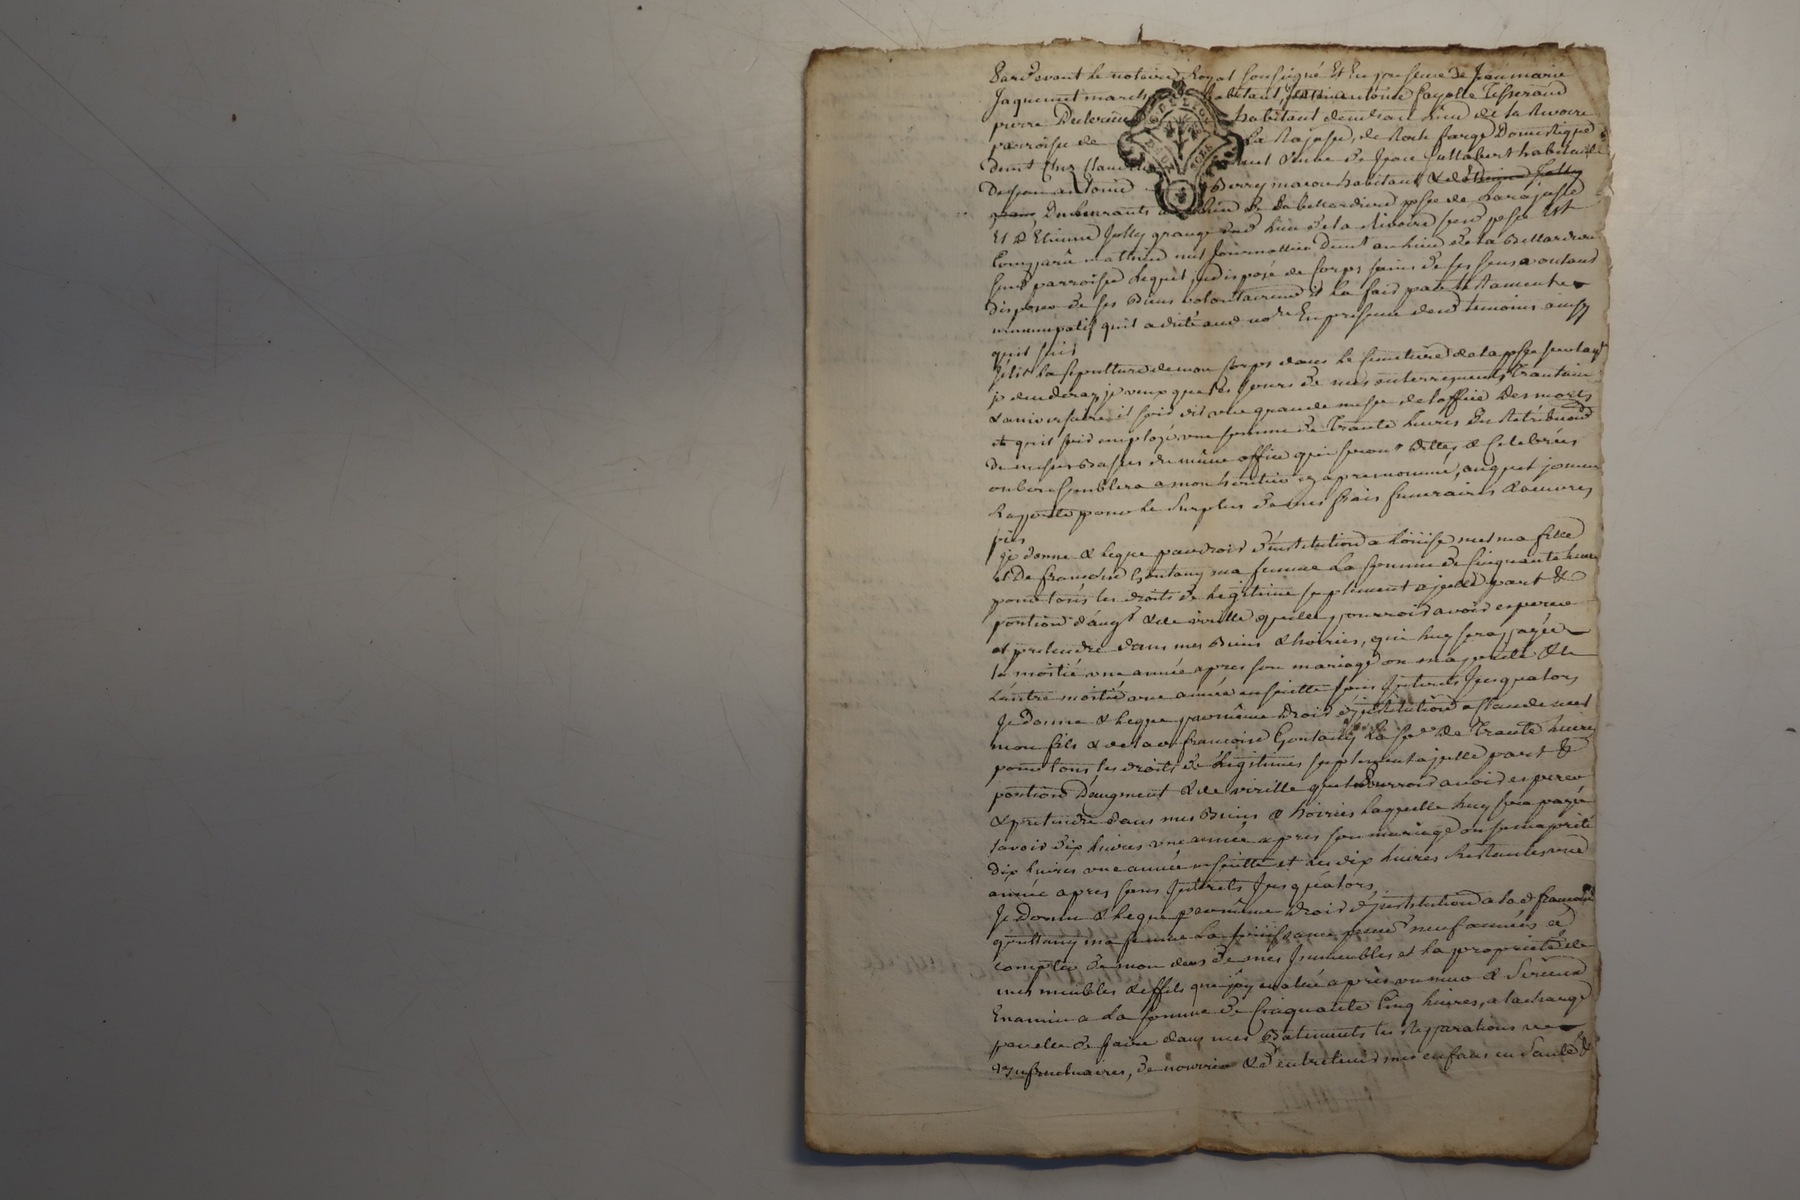 Pardevant le notaire Royal soussigné Et En presence de Jean marie
Jaquemet march habitant, antoine fayolle Tisserand
pierre habitant demeurant lieu de la Rivoire
parroise de La Rajasse, de Roch farge Domestique
demt Chez Claude de Jean habitant
De Jean antoine Berry macon habitant & de Etienne Jolly
granger Demeurants au lieu de La billardiere psse de Larajasse
Et d'Etienne Jolly granger dud lieu de la Rivoire sud psse Est
Comparu mathieu met Journallier demt au lieu de la Billardiere
sud parroisse Lequel, indisposé de Corps sains de ses sens voulant
disposer de ses Biens volontairement La fait par testament
nunnupatif quil a dicté aud no.re En presence desd temoins ainsy
quil suit
J'élis la sepulture de mon Corps dans le Cimetiere de la psse
je decederay, je veux que les Jours de mes enterrements, Trantaine
& aniversaire il soit dit une grande messe de l'office Des morts
et quil soit employé une somme de Trante livres En Retribution
de messes Basses du même office qui seront Dittes & Celebrées
ou bon semblera a mon héritier cy apres nommé, auquel je men
Rapporte pour le surplus de mes frais funeraires & oeuvres
pies
Je donne & legue par droit d'institution a Loüise met ma fille
et De françoise Gontany ma femme La somme de Cinquante livres
pour touts les droits de Legitime suplement ajcelle part &
portion d'augt & de virille quelle pourroit avoir esperer
et pretendre dans mes Biens & hoiries, qui luy sera payée
la moitié une année apres son mariage ou majorité & la
Lautre moitié une année ensuitte sans Interets Jusqualors
Je Donne & legue par même Droit d'jnstitution a Claude met
mon fils & de lad françoise Gontany La se de Trante livres
pour tous les droits de Legitimes suplement ajcelle part &
portion D'augment & de virille quil pourroit avoir esperer
& pretendre dans mes Biens & hoiries laquelle luy sera payée
savoir dix livres une année apres son mariage ou sa majorité
dix livres une année ensuitte et les dix livres Restantes une
année apres sans Interets Jusqualors,
Je Donne & legue par même droit d'jnstitution a lad françoise
gontany ma femme La joüissance neuf années a
compter de mon deces de mes Immeubles et la propriété de
mes meubles & effets que j'ay evalué après un mur & serieux
Examin a La somme de Cinquante Cinq livres, a la charge
par elle de faire dans mes Batiments les Reparations
usufructuaires, de nourrir & d'entretenir mes enfans en Santé &